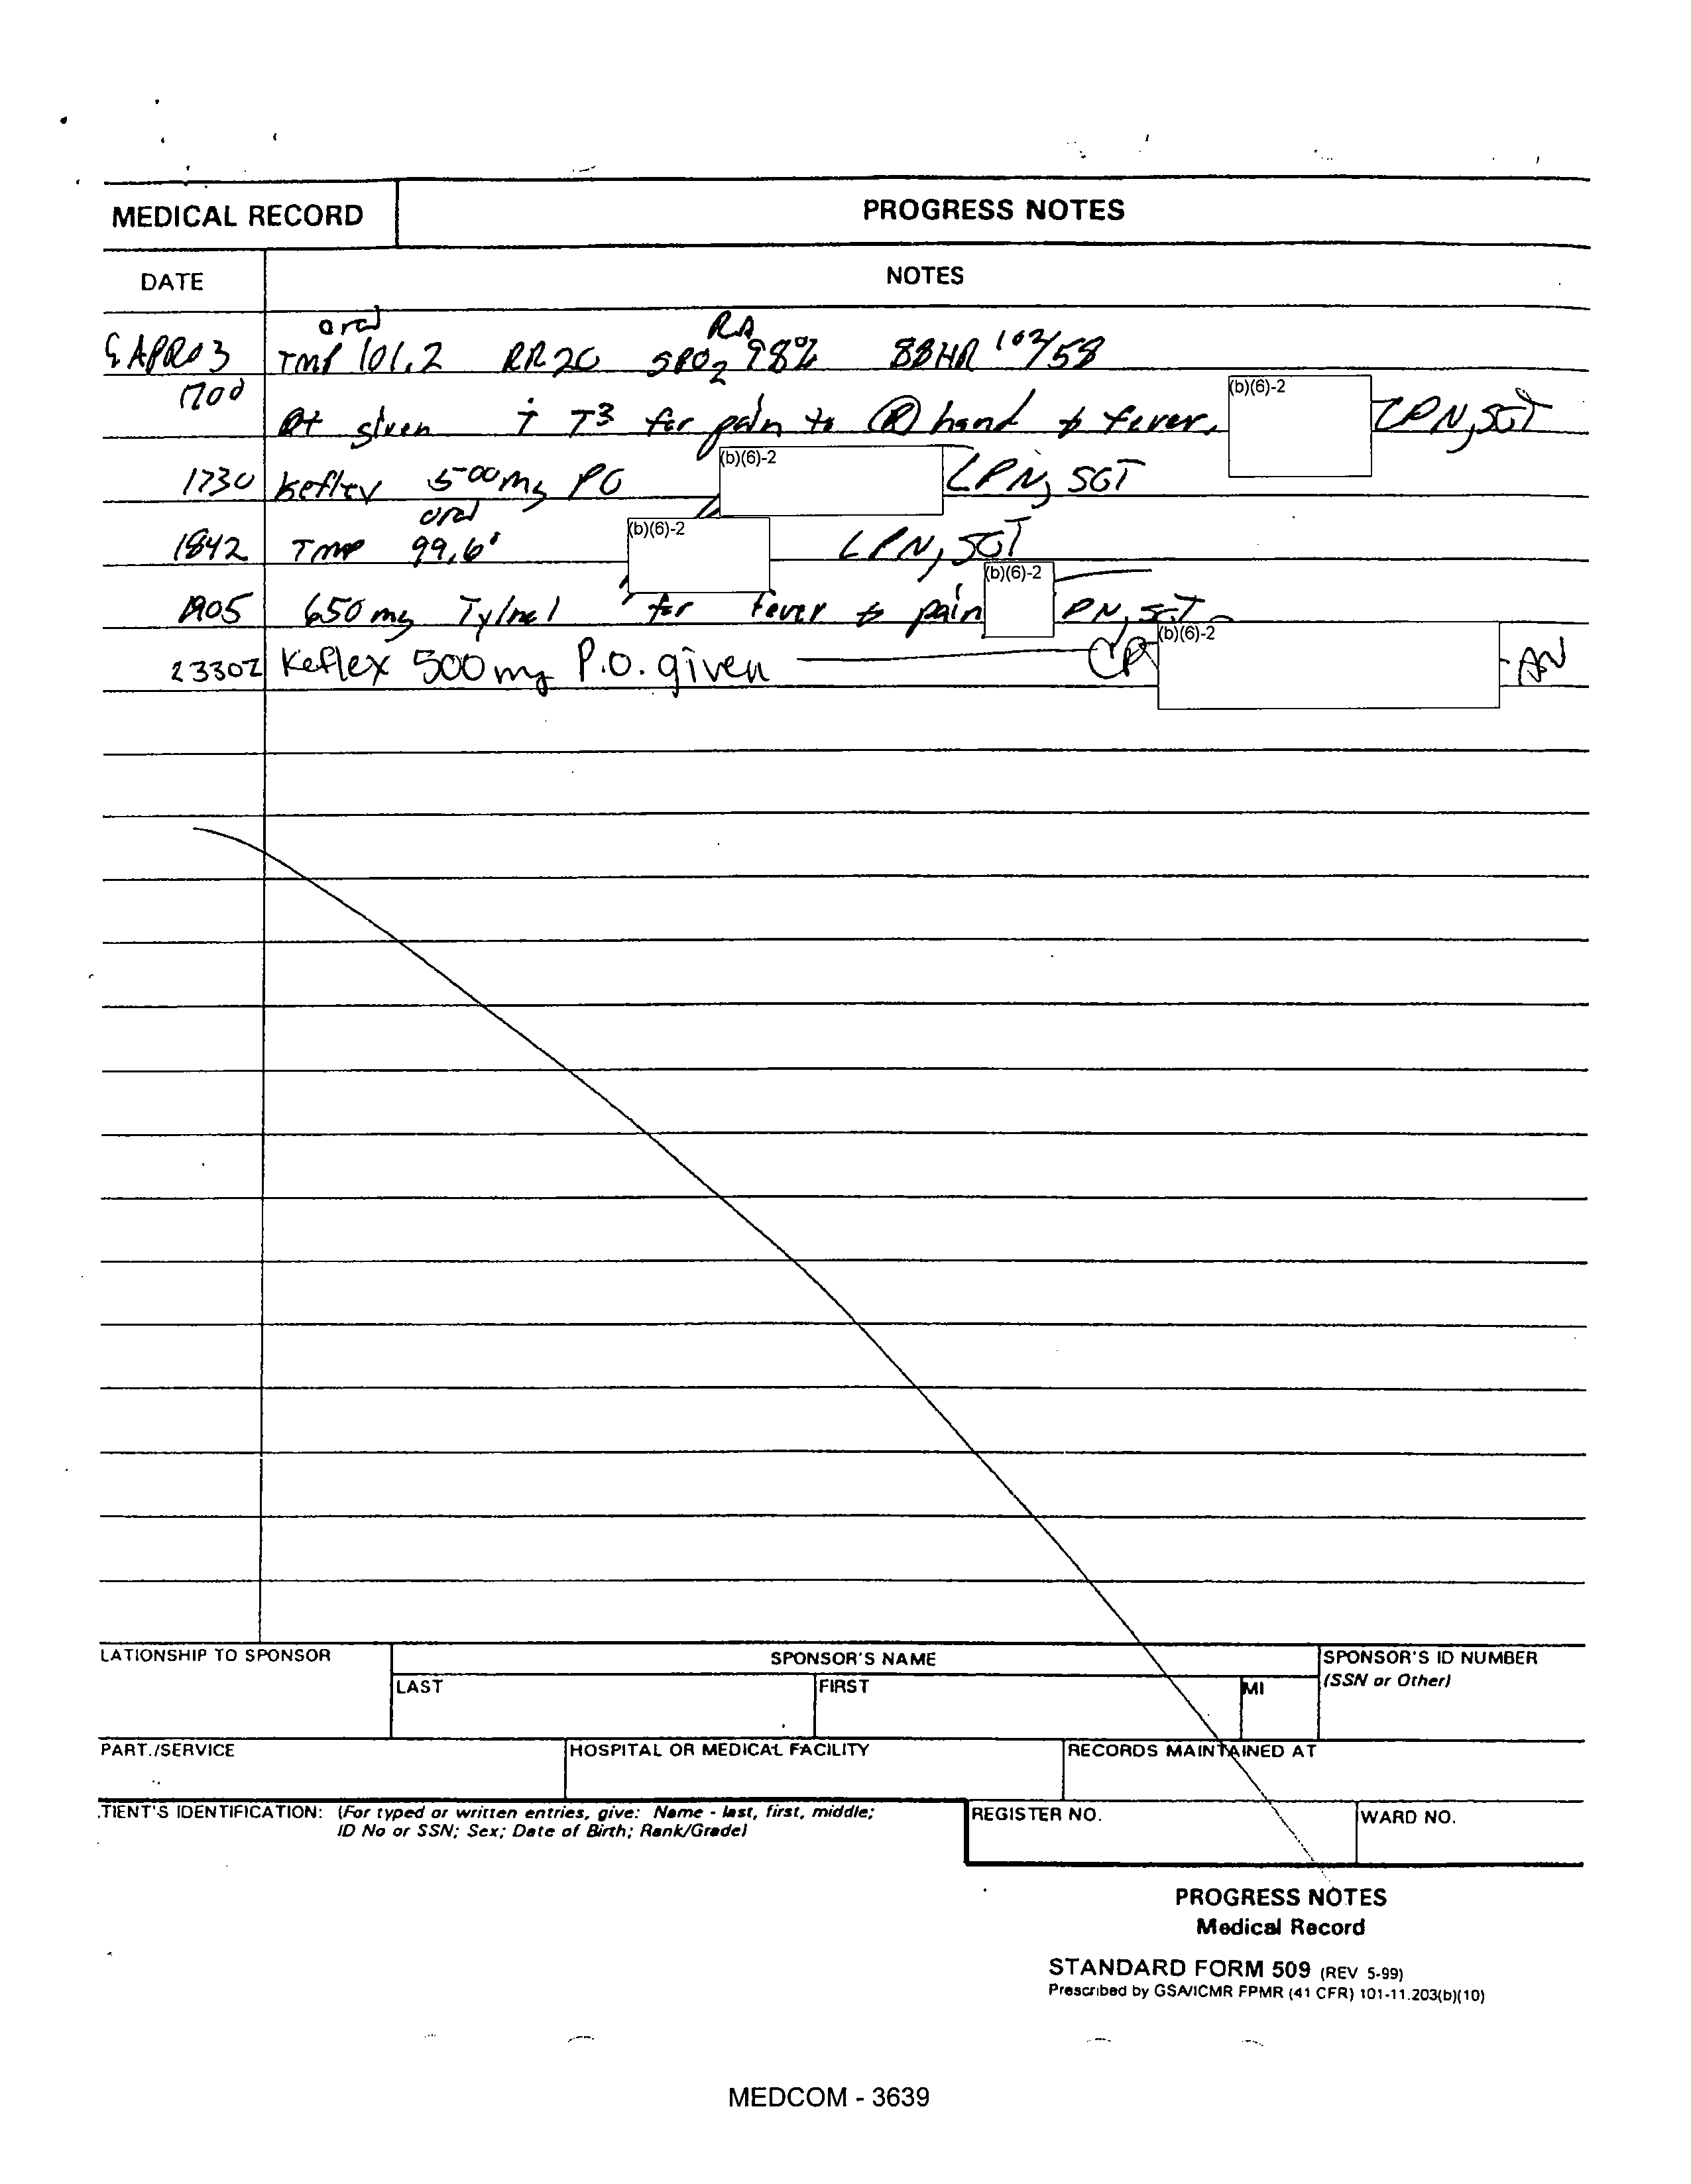 MEDICAL RECORD
PROGRESS NOTES
DATE
NOTES
oral RA
APR03 TMP 101.2 RR 20 SPO2 98% 88HR 102/58
1700
Pt given i T3 for pain to (R) hand & fever. (b)(6)-2 LPN, SGT
1730 Keflex 500mg PO (b)(6)-2 LPN, SGT
oral
1842 TMP 99.6° (b)(6)-2 LPN, SGT
1905 650 mg Tylnol for fever & pain (b)(6)-2 PN, SGT
2330Z Keflex 500mg P.O. given (b)(6)-2 AN
LATIONSHIP TO SPONSOR
SPONSOR'S NAME
SPONSOR'S ID NUMBER
(SSN or Other)
LAST
FIRST
MI
PART./SERVICE
HOSPITAL OR MEDICAL FACILITY
RECORDS MAINTAINED AT
TIENT'S IDENTIFICATION: (For typed or written entries, give: Name - last, first, middle;
ID No or SSN; Sex; Date of Birth; Rank/Grade)
REGISTER NO.
WARD NO.
PROGRESS NOTES
Medical Record
STANDARD FORM 509 (REV 5-99)
Prescribed by GSA/ICMR FPMR (41 CFR) 101-11.203(b)(10)
MEDCOM - 3639